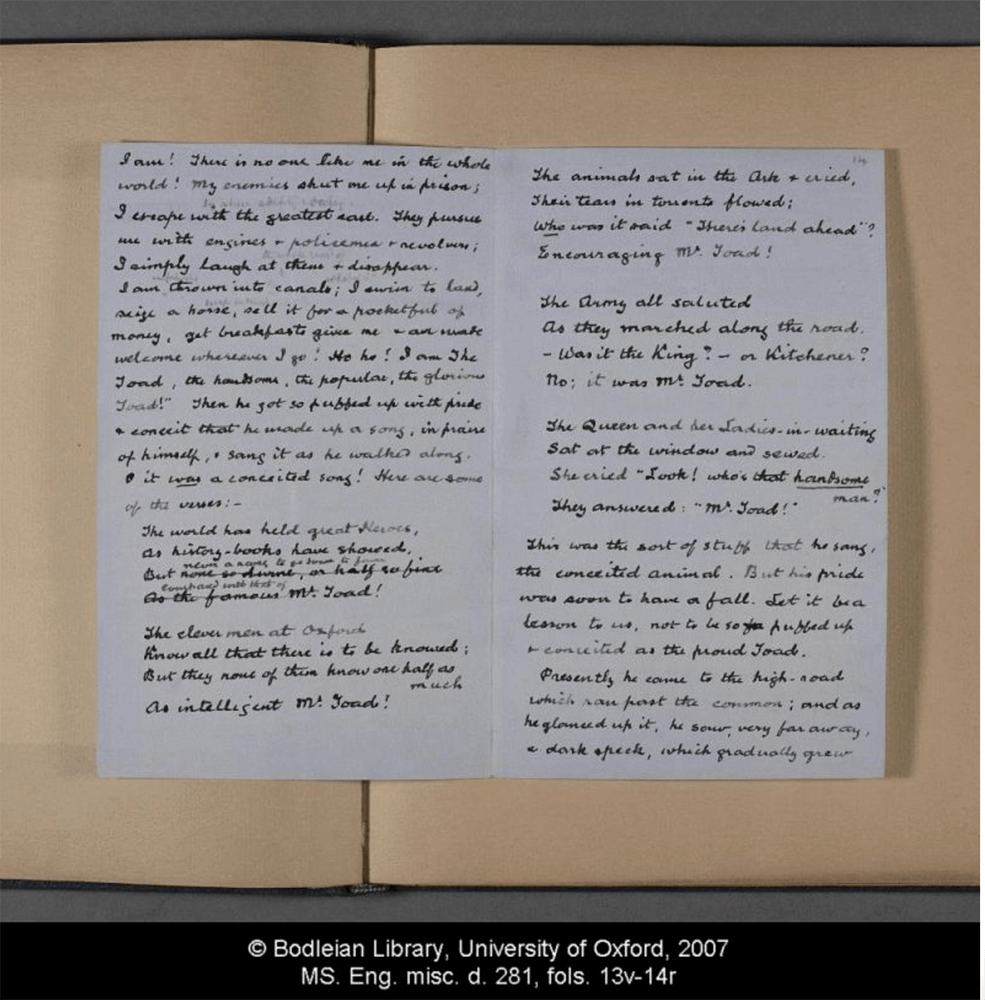 I am! There is no one like me in the whole
world! My enemies shut me up in prison;
I escape with the greatest ease. They pursue
me with engines + policemen + revolvers;
I simply laugh at them + disappear.
I am thrown into canals; I swim to land,
seize a horse, sell it for a pocketful of
money, get breakfasts given me + am made
welcome whereever I go! Ho ho! I am The
Toad, the handsome, the popular, the glorious
Toad!" Then he got so puffed up with pride
+ conceit that he made up a song, in praise
of himself, + sang it as he walked along.
O it was a conceited song! Here are some
of the verses:-
The world has held great Heroes,
As history-books have showed,
never a name to go down to fame
But none so divine, or half so fine
compared with that of
As the famous Mr. Toad!
The clever men at Oxford
Know all that there is to be knowed;
But they none of them know one half as
much
As intelligent Mr. Toad!
14
The animals sat in the Ark + cried,
Their tears in torrents flowed;
Who was it said "There's land ahead"?
Encouraging Mr. Toad!
The Army all saluted
As they marched along the road.
- Was it the King? - or Kitchener?
No; it was Mr. Toad.
The Queen and her Ladies-in-waiting
Sat at the window and sewed.
She cried "Look! who's that handsome
man?"
They answered: "Mr. Toad!"
This was the sort of stuff that he sang,
the conceited animal. But his pride
was soon to have a fall. Let it be a
lesson to us, not to be so puffed up
+ conceited as the proud Toad.
Presently he came to the high-road
which ran past the common; and as
he glanced up it, he saw, very far away,
a dark speck, which gradually grew
© Bodleian Library, University of Oxford, 2007
MS. Eng. misc. d. 281, fols. 13v-14r